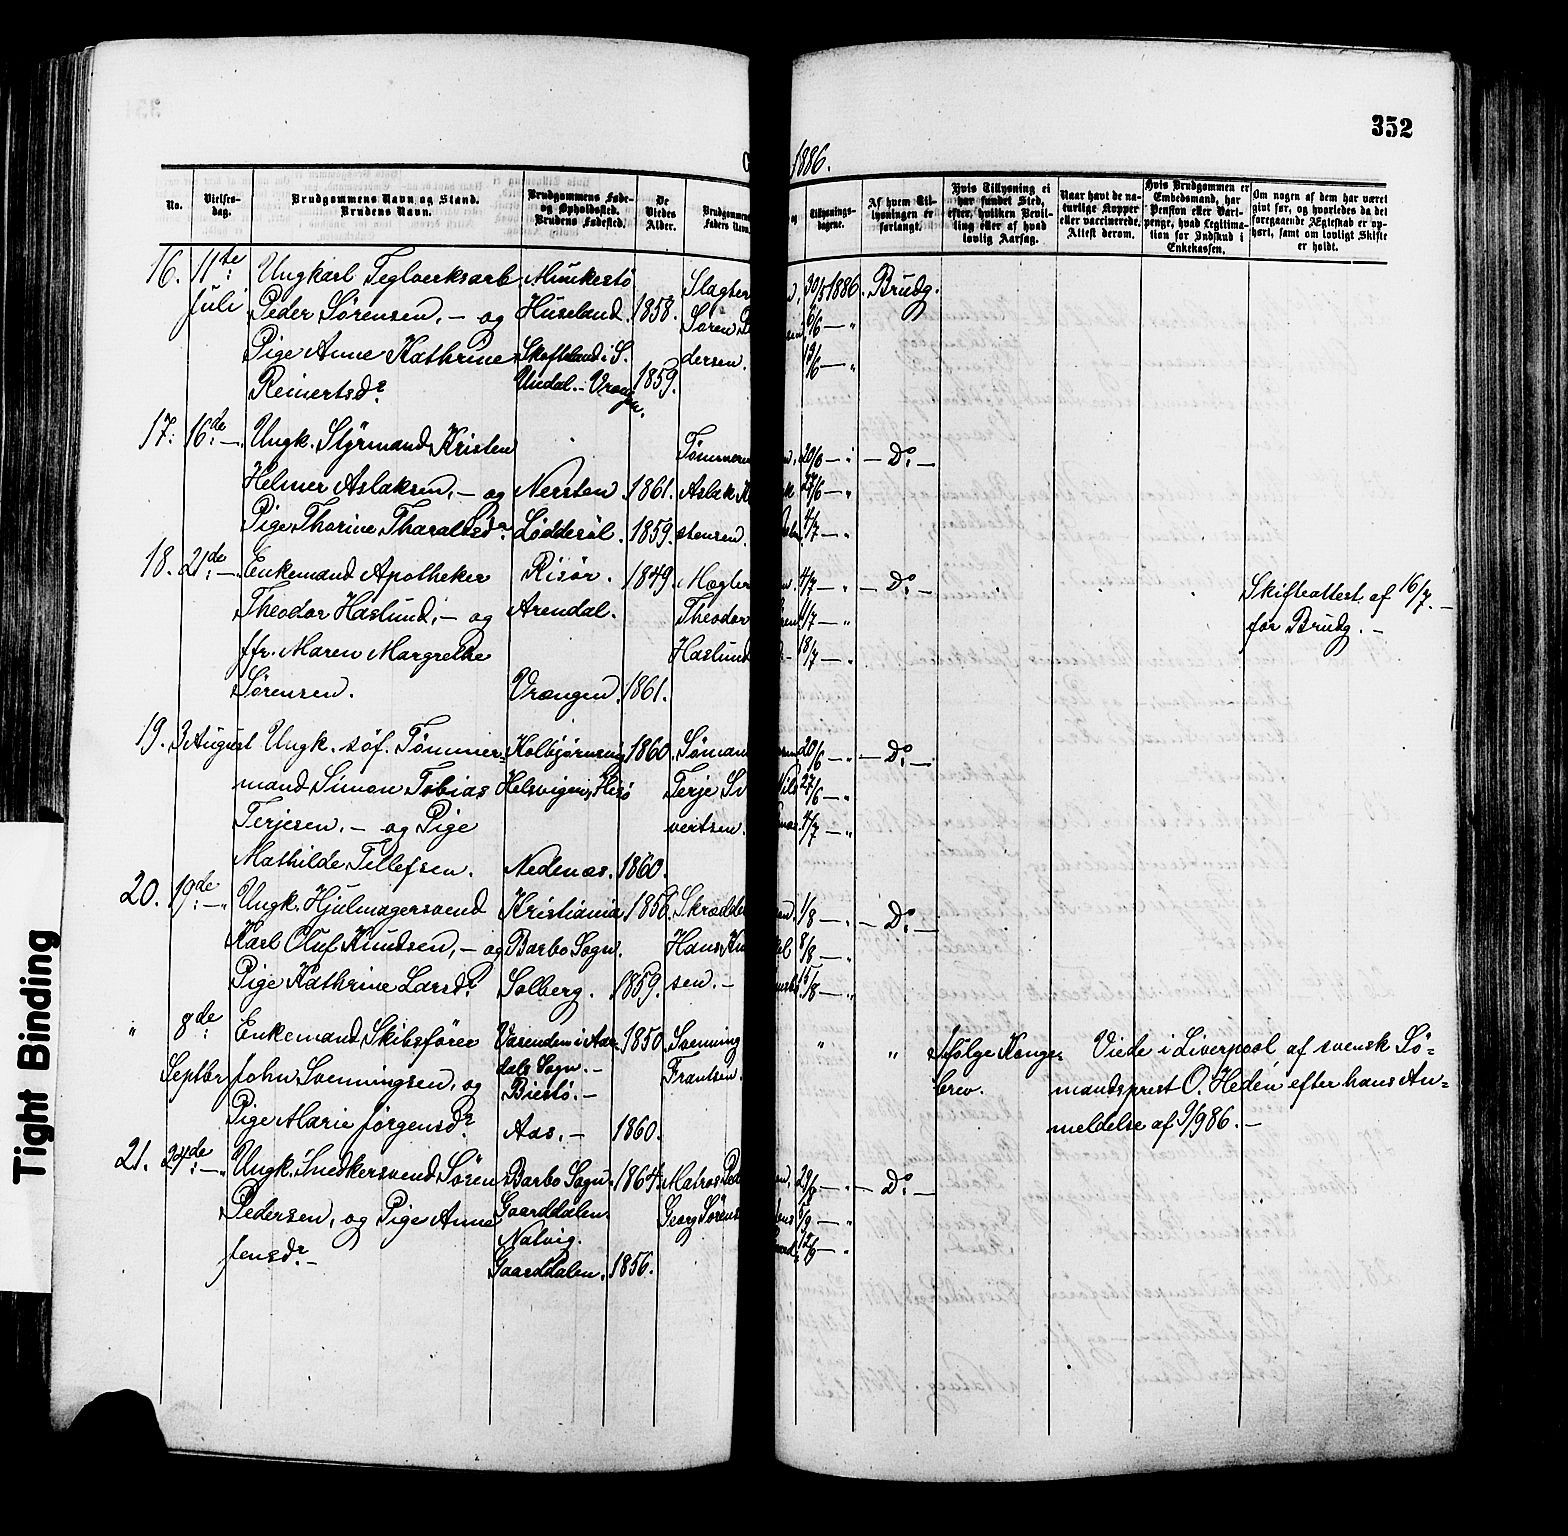 352
1886.
No.
Vielses-
dag.
Brudgommens Navn og Stand.
Brudens Navn.
Brudgommens Føde-
og Opholdssted.
Brudens Fødested.
De
Viedes
Alder.
Brudgommens
Faders Navn.
og
Tillysnings-
dagene.
Af hvem Til-
lysningen er
forlangt.
Hvis Tillysning ei
har fundet Sted,
efter hvilken Bevil-
ling eller af hvad
lovlig Aarsag.
Naar havt de na-
turlige Kopper
eller vaccinerede.
Attest derom.
Hvis Brudgommen er
Embedsmand, har
Pension eller Vart-
penge, hvad Legitima-
tion for Indskud i
Enkekassen.
Om nogen af dem har været
gift før, og hvorledes da det
foregaaende Ægteskab er op-
hørt, samt om lovligt Skifte
er holdt.
16. 11te Ungkarl Teglverksarb. Munkestø Slagter 30/5 1886. Brudg.
Juli Peder Sørensen, – og Huseland. 1858. Søren P 6/6 — "
Pige Anne Kathrine Skofteland i S. dersen. 13/6 — "
Reinertsdr. Undal. – Vrængen. 1859.
17. 16de — Ungk. Styrmand Kristen Tømmerm 20/6 — " — Do. —
Helmer Aslaksen, – og Nersten. 1861. Aslak K 27/6 — "
Pige Thorine Tharaldsdr. Løddesøl. 1859. stensen. 4/7 — "
18. 21de — Enkemand Apotheker Risør. 1849. Mægler 4/7 — " — Do. — Skifteattest af 16/7. –
Theodor Haslund, – og Arendal. Theodor 11/7 — " for Brudg. –
ffr. Maren Margrethe Haslund 18/7 — "
Sørensen. Vrængen. 1861.
19. 3 August Ungk. søf. Tømmer- Kolbjørnsvig 1860. Sømand 20/6 — " — Do. —
mand Simon Tobias Helsvigen, Hisø Terje Si 27/6 — "
Terjesen. – og Pige vertsen. 4/7 — "
Mathilde Tellefsen. Nedenæs. 1860.
20. 19de — " Ungk. Hjulmagersvend Kristiania 1856. Skrædde 1/8 — " — Do. —
Karl Oluf Knudsen, – og Barbo Sogn. Hans Kn 8/8 — "
Pige Kathrine Larsdr. Solberg. 1859. sen. – 15/8 — "
" 8de Enkemand Skibsfører 1850. Svenning " " Ifølge Konge- Viede i Liverpool af svensk Sø-
Septbr John Svenningsen, og dals Sogn. – Frantsen. brev. mandsprest O. Hedén efter hans An-
Biestø. – meldelse af 9/9 86. –
Pige Marie Jørgensdr. Aas. – 1860.
21. 24de — " Ungk. Snedkersvend Søren Barbo Sogn. 1864. Matros Ped 29/8 — " — Do. —
Pedersen, og Pige Anne Gaarddalen. Georg Sørens 5/9 — "
Jensdr. – Natvig. 12/9 — "
Gaarddalen. 1856.
Tight Binding